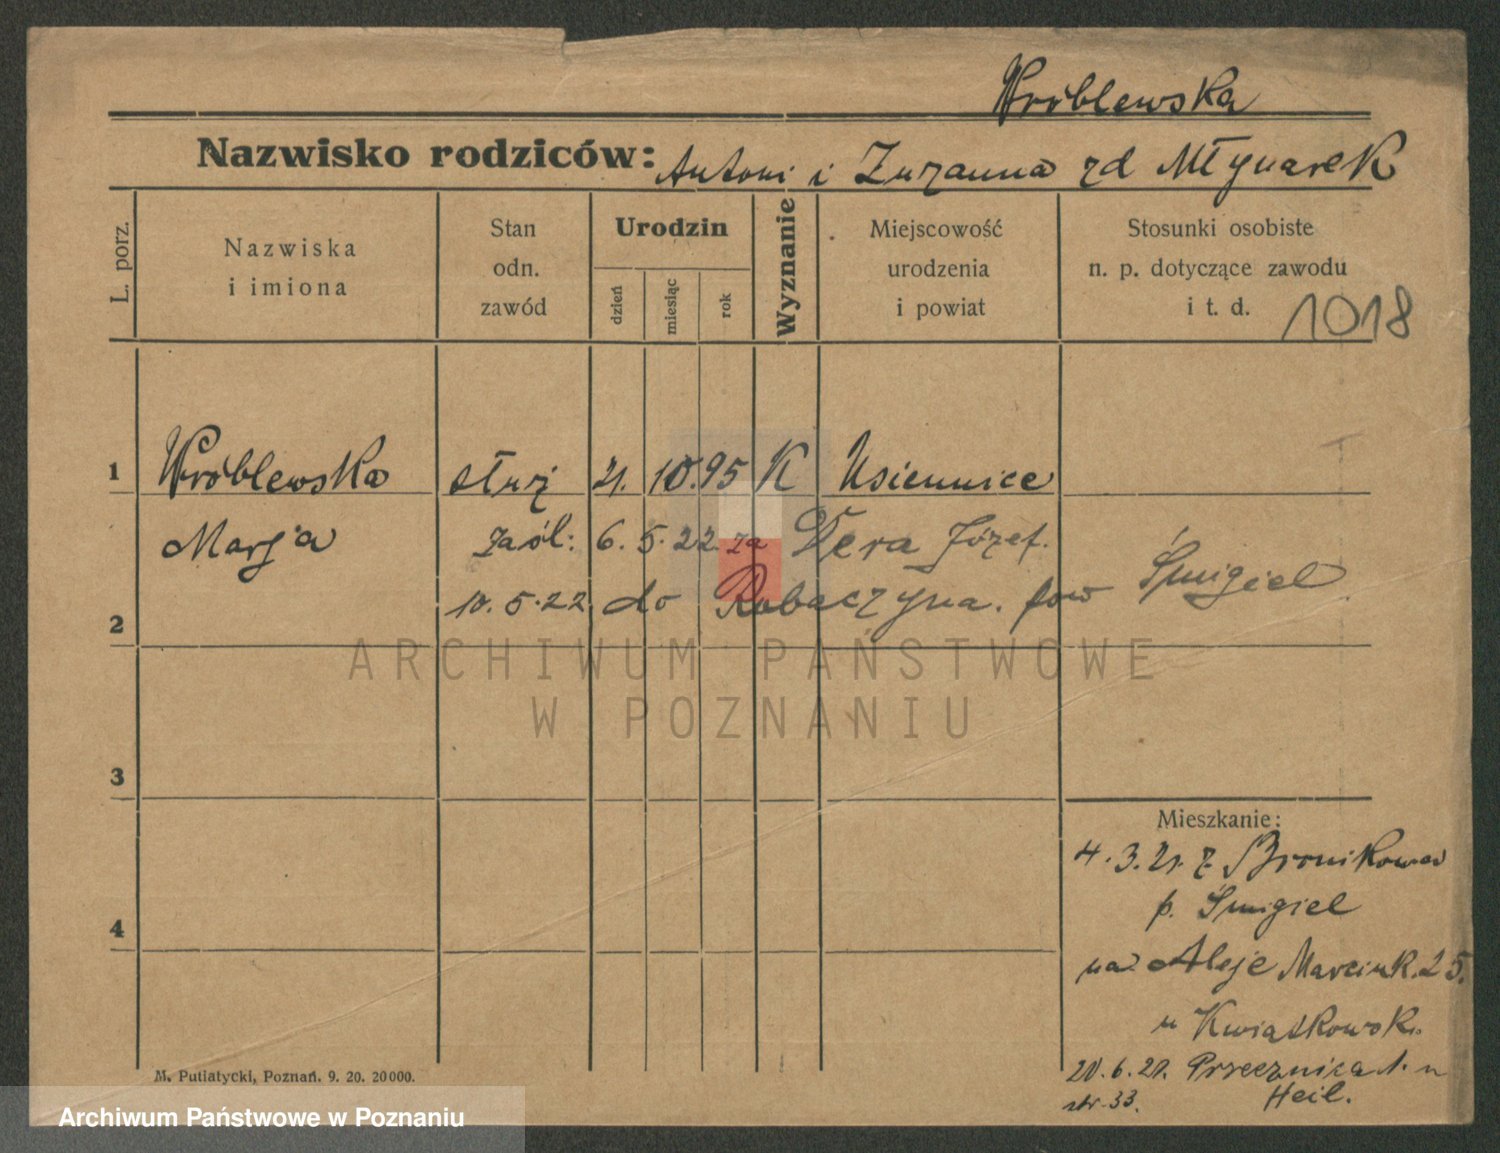 Wróblewska
Nazwisko rodziców: Antoni i Zuzanna zd Młynarek
L. porz.
Nazwiska
i imiona
Stan
odn.
zawód
Urodzin
dzień
miesiąc
rok
Wyznanie
Miejscowość
urodzenia
i powiat
Stosunki osobiste
n. p. dotyczące zawodu
i t. d.
1018
1 Wróblewska służ 21. 10. 95 K Usiennice
Marja zaśl: 6. 5. 22 za Dera Józef.
2 10. 5. 22 do Robaczyna. pow Śmigiel
3
Mieszkanie:
4. 3. 21. z Bronikowa
p. Śmigiel
4
na Aleje Marcink. 25.
u Kwiatkowsk.
20. 6. 21. Przecznica 1. u
str. 33. Heil.
M. Putiatycki, Poznań. 9. 20. 20000.
ARCHIWUM PAŃSTWOWE
W POZNANIU
Archiwum Państwowe w Poznaniu